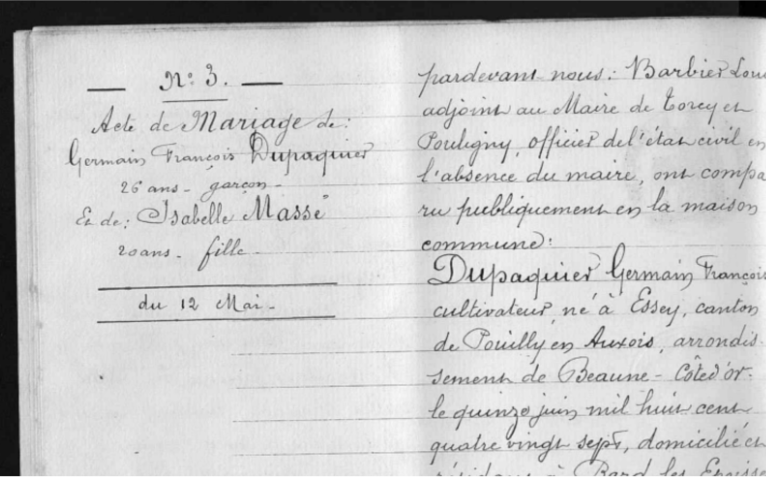 N° 3.
Acte de Mariage de:
Germain François Dupaquier
26 ans - garçon -
Et de: Isabelle Masse
20 ans - fille
du 12 Mai -
pardevant nous: Barbier
adjoint au Maire de Torcy et
Pouligny, officier de l'état civil en
l'absence du maire, ont compa
ru publiquement en la maison
commune:
Dupaquier Germain, François
cultivateur, né à Essey, canton
de Pouilly en Auxois, arrondis-
sement de Beaune - Côte d'or -
le quinze juin mil huit cent
quatre vingt sept, domicilié et
à Bard les